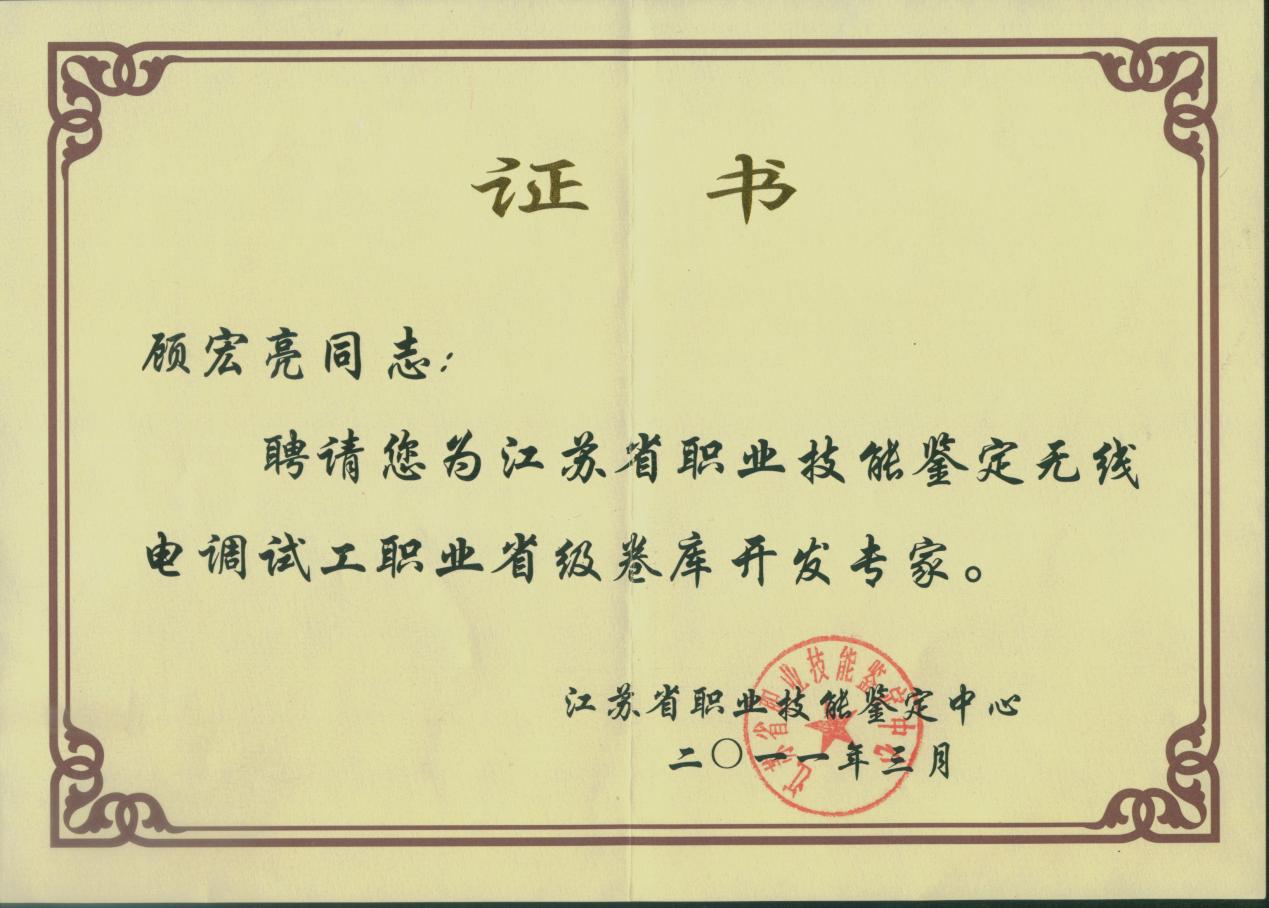 证 书
顾宏亮同志:
聘请您为江苏省职业技能鉴定无线
电调试工职业省级卷库开发专家。
江苏省职业技能鉴定中心
二〇一一年三月
江苏省职业技能鉴定中心